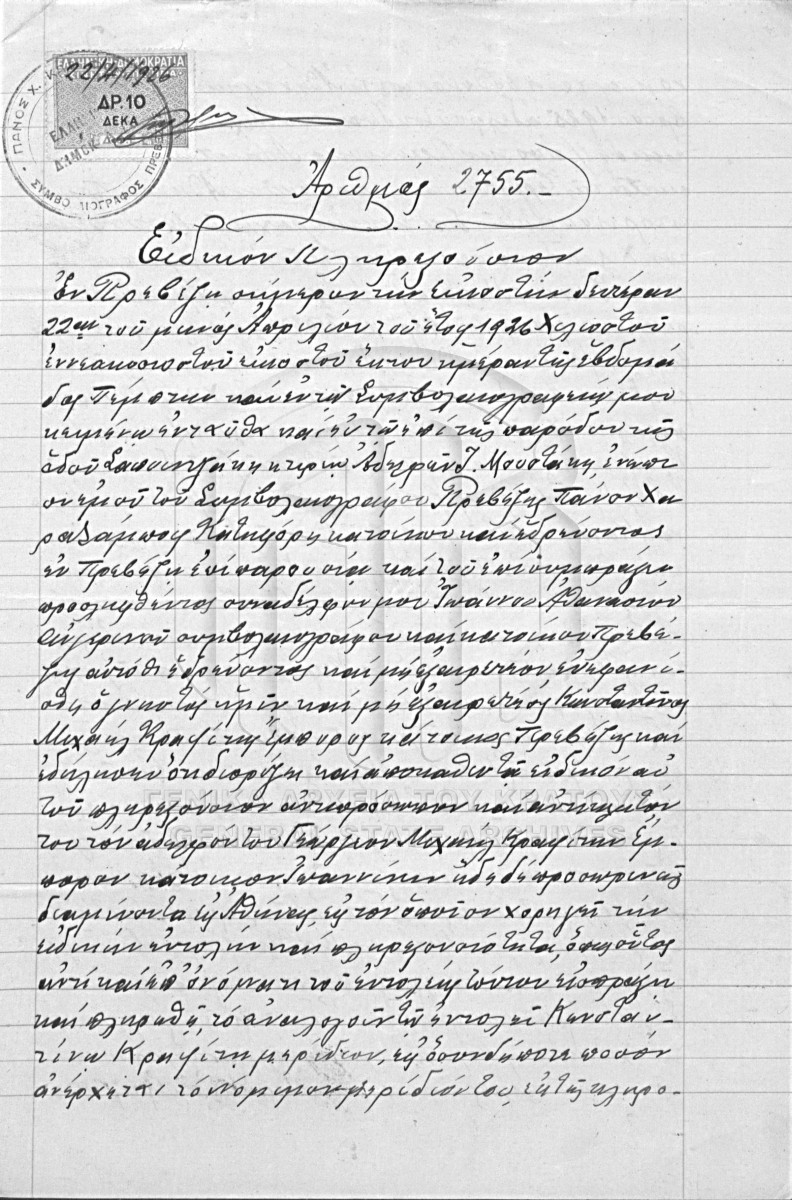 ΕΛΛΗΝΙΚΗ ΔΗΜΟΚΡΑΤΙΑ
22/4/1926
ΔΡ. 10
ΔΕΚΑ
ΠΑΝΟΣ Χ. Κ
ΣΥΜΒΟΛΑΙΟΓΡΑΦΟΣ ΠΡΕΒΕ
Ἀριθμός 2755.-
Εἰδικόν Πληρεξούσιον
Ἐν Πρεβέζῃ σήμερον τήν εἰκοστήν δευτέραν
22αν τοῦ μηνός Ἀπριλίου τοῦ ἔτους 1926 Χιλιοστοῦ
ἐννεακοσιοστοῦ εἰκοστοῦ ἕκτου ἡμέραν τῆς ἑβδομά
δος Πέμπτην καί ἐν τῷ Συμβολαιογραφείῳ μου
κειμένῳ ἐνταῦθα καί ἐν τῷ ἐπί τῆς παρόδου τῆς
ὁδοῦ Σαπουντζάκη κτιρίῳ Ἀδελφῶν Ι. Μουστάκη, ἐνώπι
ον ἐμοῦ τοῦ Συμβολαιογράφου Πρεβέζης Πάνου Χα
ραλάμπους Κατηφόρη κατοίκου καί ἑδρεύοντος
ἐν Πρεβέζῃ ἐπί παρουσίᾳ καί τοῦ ἐπί συμπράξει
προσληφθέντος συναδέλφου μου Ἰωάννου Ἀθανασίου
συμβολαιογράφου καί κατοίκου Πρεβέ-
ζης αὐτόθι ἑδρεύοντος καί μή ἐξαιρετέου ἐνεφανί-
σθη ὁ γνωστός ἡμῖν καί μή ἐξαιρετέος Κωνσταντῖνος
Μιχαήλ Κραψίτης ἔμπορος κάτοικος Πρεβέζης καί
ἐδήλωσεν ὅτι διορίζει καί ἀποκαθιστᾷ εἰδικόν αὐ
τοῦ πληρεξούσιον ἀντιπρόσωπον καί ἀντίκλητόν
του τόν ἀδελφόν του Γεώργιον Μιχαήλ Κραψίτην ἔμ-
πορον κάτοικον Ἰωαννίνων ἤδη δέ προσωρινῶς
διαμένοντα εἰς Ἀθήνας, εἰς τόν ὁποῖον χορηγεῖ τήν
εἰδικήν ἐντολήν καί πληρεξουσιότητα, ὅπως οὗτος
ἀντί καί ἐπ' ὀνόματι τοῦ ἐντολέως τούτου εἰσπράξῃ
καί πληρωθῇ, τό ἀναλογοῦν τῷ ἐντολεῖ Κωνσταν-
τίνῳ Κραψίτῃ μερίδιον, εἰς ὅσονδήποτε ποσόν
ἀνέρχεται τό νόμιμον μερίδιόν του, ἐκ τῆς κληρο-
ΓΕΝΙΚΑ ΑΡΧΕΙΑ ΤΟΥ ΚΡΑΤΟΥΣ
GENERAL STATE ARCHIVES